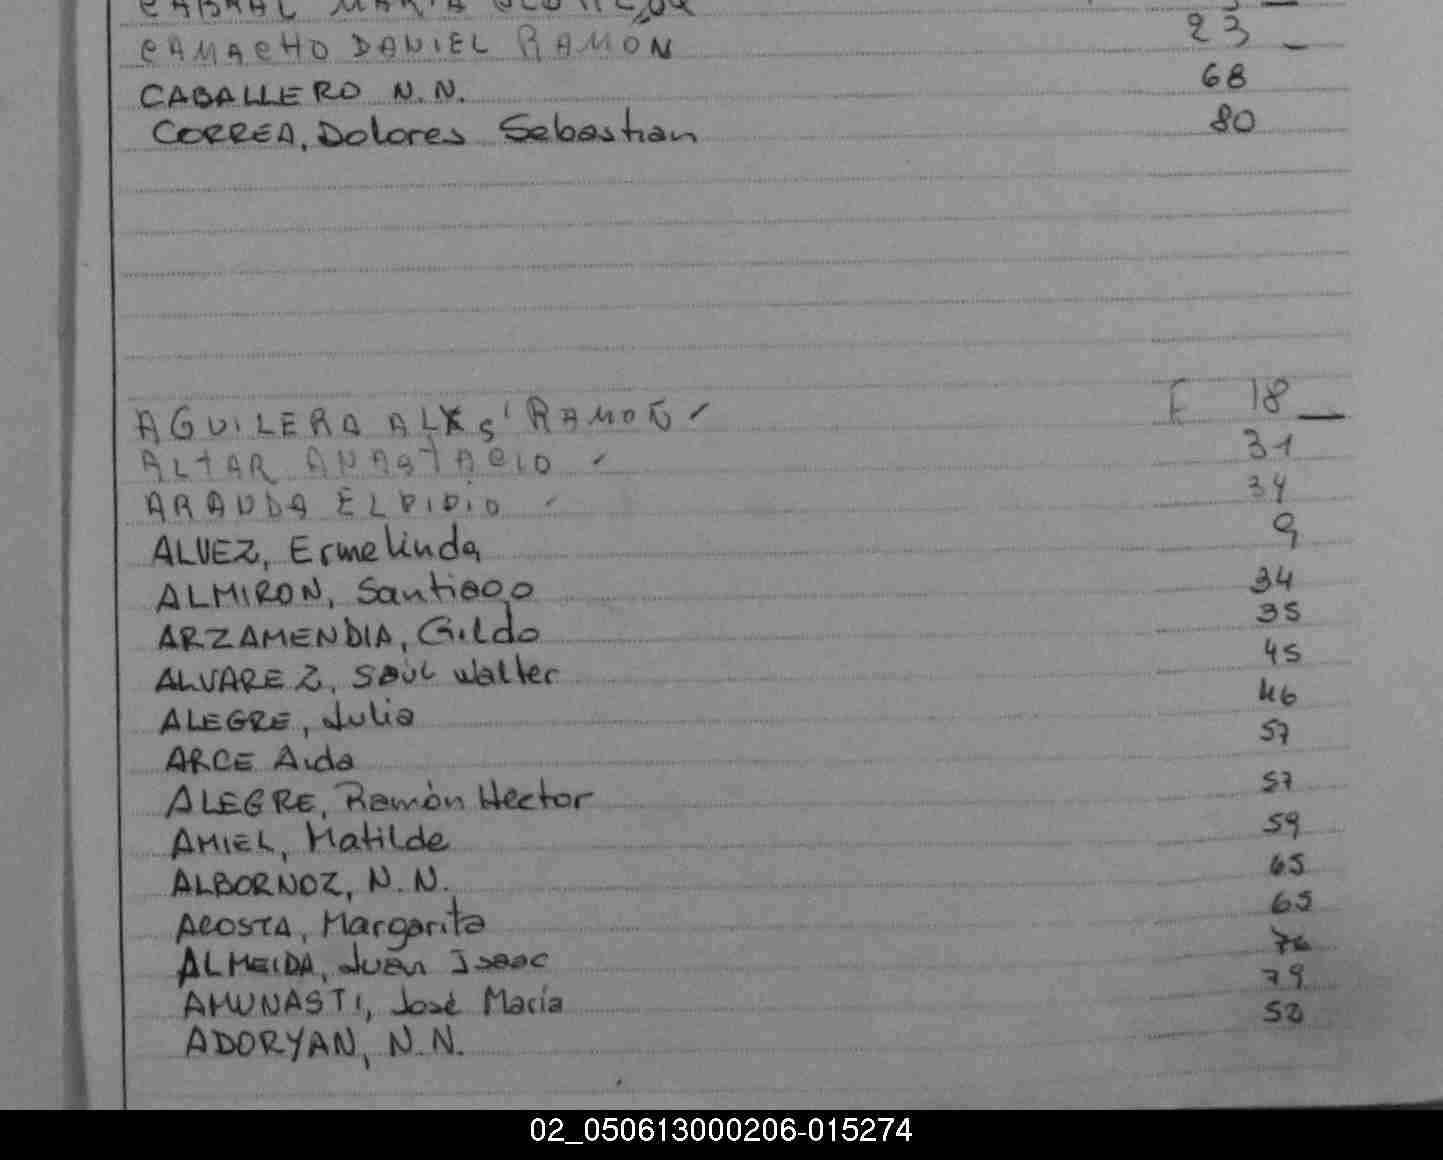 CABRAL MARIA
CAMACHO DANIEL RAMÓN 23 _
CABALLERO N.N. 68
CORREA, Dolores Sebastian 80
AGUILERA RAMON ✓ F 18 _
ALTAR ANASTACIO ✓ 31
ARANDA ELPIDIO ✓ 34
ALVEZ, Ermelinda 9
ALMIRON, Santiago 34
ARZAMENDIA, Gildo 35
ALVAREZ, SAÚL Walter 45
ALEGRE, Julia 46
ARCE Aida 57
ALEGRE, Ramón Hector 57
AMIEL, Matilde 59
ALBORNOZ, N.N. 65
ACOSTA, Margarita 65
ALMEIDA, Juan Isaac 76
AMUNASTI, José María 79
ADORYAN, N.N.
02_050613000206-015274